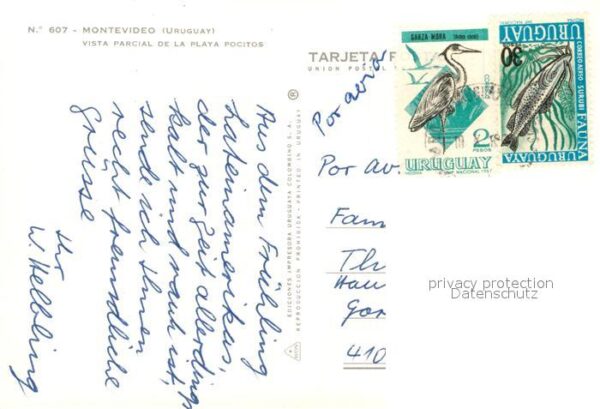 N.º 607 - MONTEVIDEO (URUGUAY)
VISTA PARCIAL DE LA PLAYA POCITOS
Aus dem Frühling
Lateinamerikas,
der zur Zeit allerdings
kalt und rauh ist,
sende ich Ihnen
recht freundliche
Grüsse
Ihr
W. Helbling
EDICIONES IMPRESORA URUGUAYA COLOMBINO S. A.
REPRODUCCION PROHIBIDA - PRINTED IN URUGUAY
TARJETA P
UNION POSTAL
Por avia
Por Av
Fam
Th
Hau
Gor
410
GARZA MORA
2
PESOS
URUGUAY
CORREO AEREO SURUBI
FAUNA
URUGUAY
30
privacy protection
Datenschutz